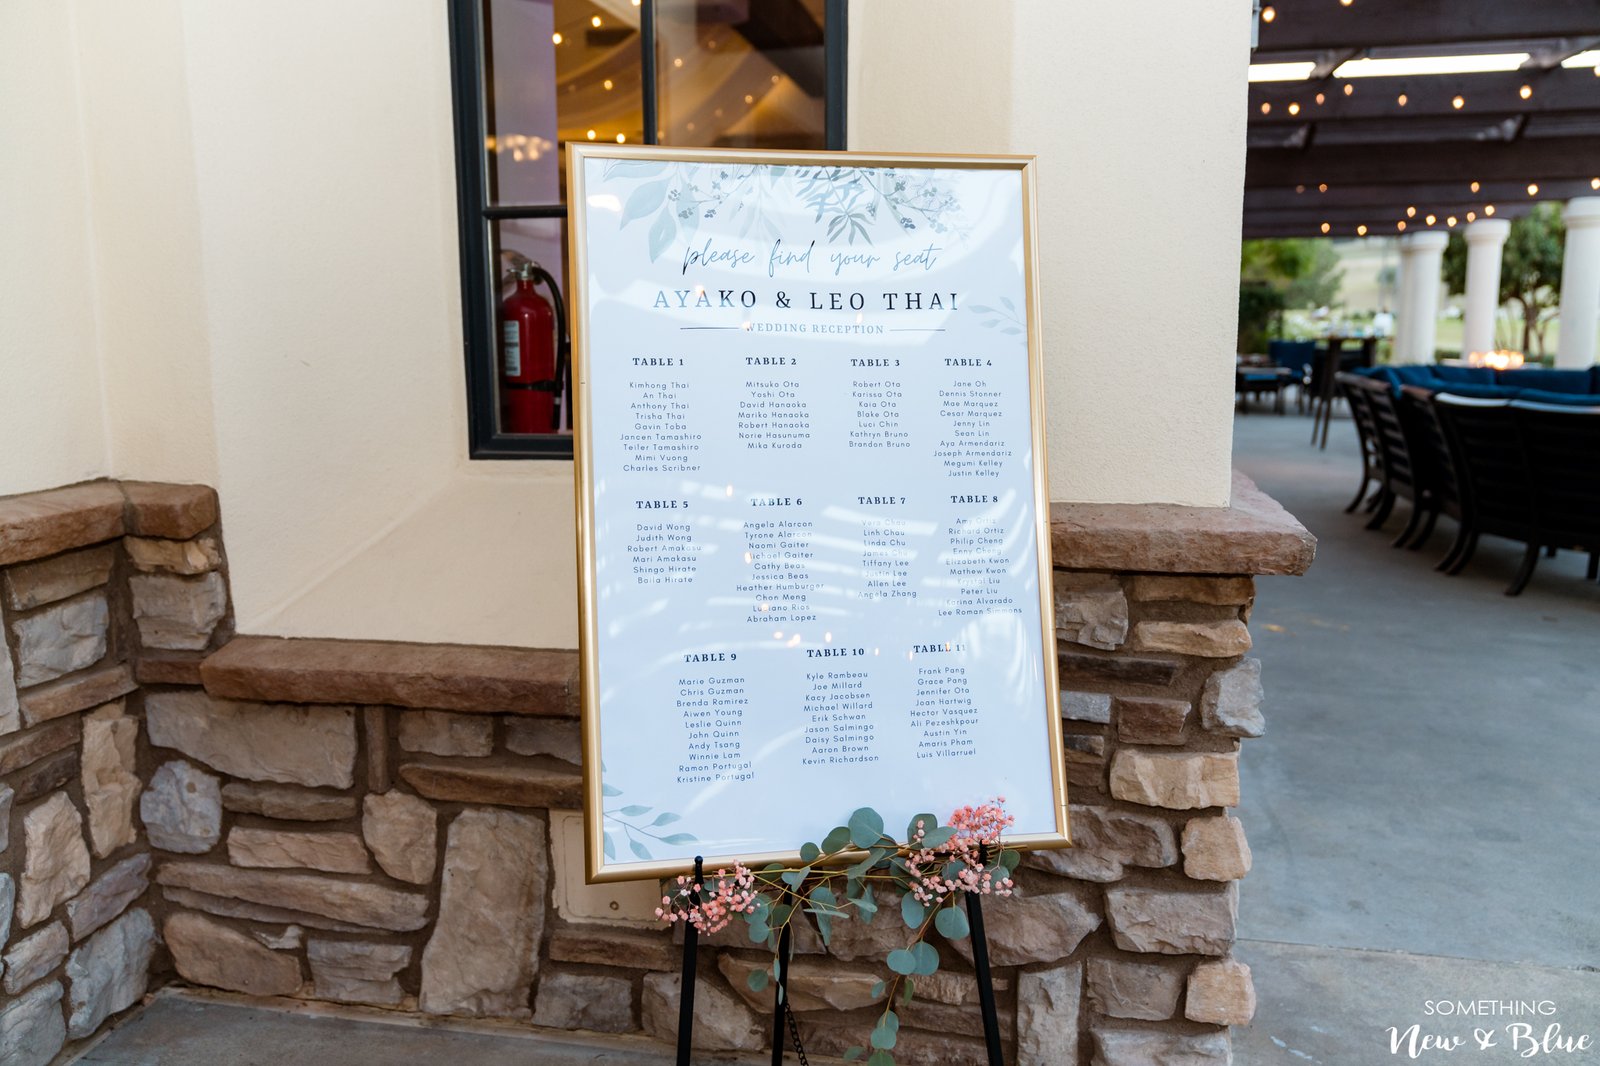 please find your seat
AYAKO & LEO THAI
WEDDING RECEPTION
TABLE 1
Kimhong Thai
An Thai
Anthony Thai
Trisha Thai
Gavin Toba
Jancen Tamashiro
Teiler Tamashiro
Mimi Vuong
Charles Scribner
TABLE 2
Mitsuko Ota
Yoshi Ota
David Hanaoka
Mariko Hanaoka
Robert Hanaoka
Norie Hasunuma
Mika Kuroda
TABLE 3
Robert Ota
Karissa Ota
Kaia Ota
Blake Ota
Luci Chin
Kathryn Bruno
Brandon Bruno
TABLE 4
Jane Oh
Dennis Stonner
Mae Marquez
Cesar Marquez
Jenny Lin
Sean Lin
Aya Armendariz
Joseph Armendariz
Megumi Kelley
Justin Kelley
TABLE 5
David Wong
Judith Wong
Robert Amakasu
Mari Amakasu
Shingo Hirate
Baila Hirate
TABLE 6
Angela Alarcon
Tyrone Alarcon
Naomi Gaiter
Michael Gaiter
Cathy Beas
Jessica Beas
Heather Humburger
Chon Meng
Luciano Rios
Abraham Lopez
TABLE 7
Vera Chau
Linh Chau
Linda Chu
James Chu
Tiffany Lee
Justin Lee
Allen Lee
Angela Zhang
TABLE 8
Amy Ortiz
Richard Ortiz
Philip Cheng
Enny Cheng
Elizabeth Kwon
Mathew Kwon
Krystal Liu
Peter Liu
Karina Alvarado
Lee Roman Simmons
TABLE 9
Marie Guzman
Chris Guzman
Brenda Ramirez
Aiwen Young
Leslie Quinn
John Quinn
Andy Tsang
Winnie Lam
Ramon Portugal
Kristine Portugal
TABLE 10
Kyle Rambeau
Joe Millard
Kacy Jacobsen
Michael Willard
Erik Schwan
Jason Salmingo
Daisy Salmingo
Aaron Brown
Kevin Richardson
TABLE 11
Frank Pang
Grace Pang
Jennifer Ota
Joan Hartwig
Hector Vasquez
Ali Pezeshkpour
Austin Yin
Amaris Pham
Luis Villarruel
SOMETHING
New & Blue